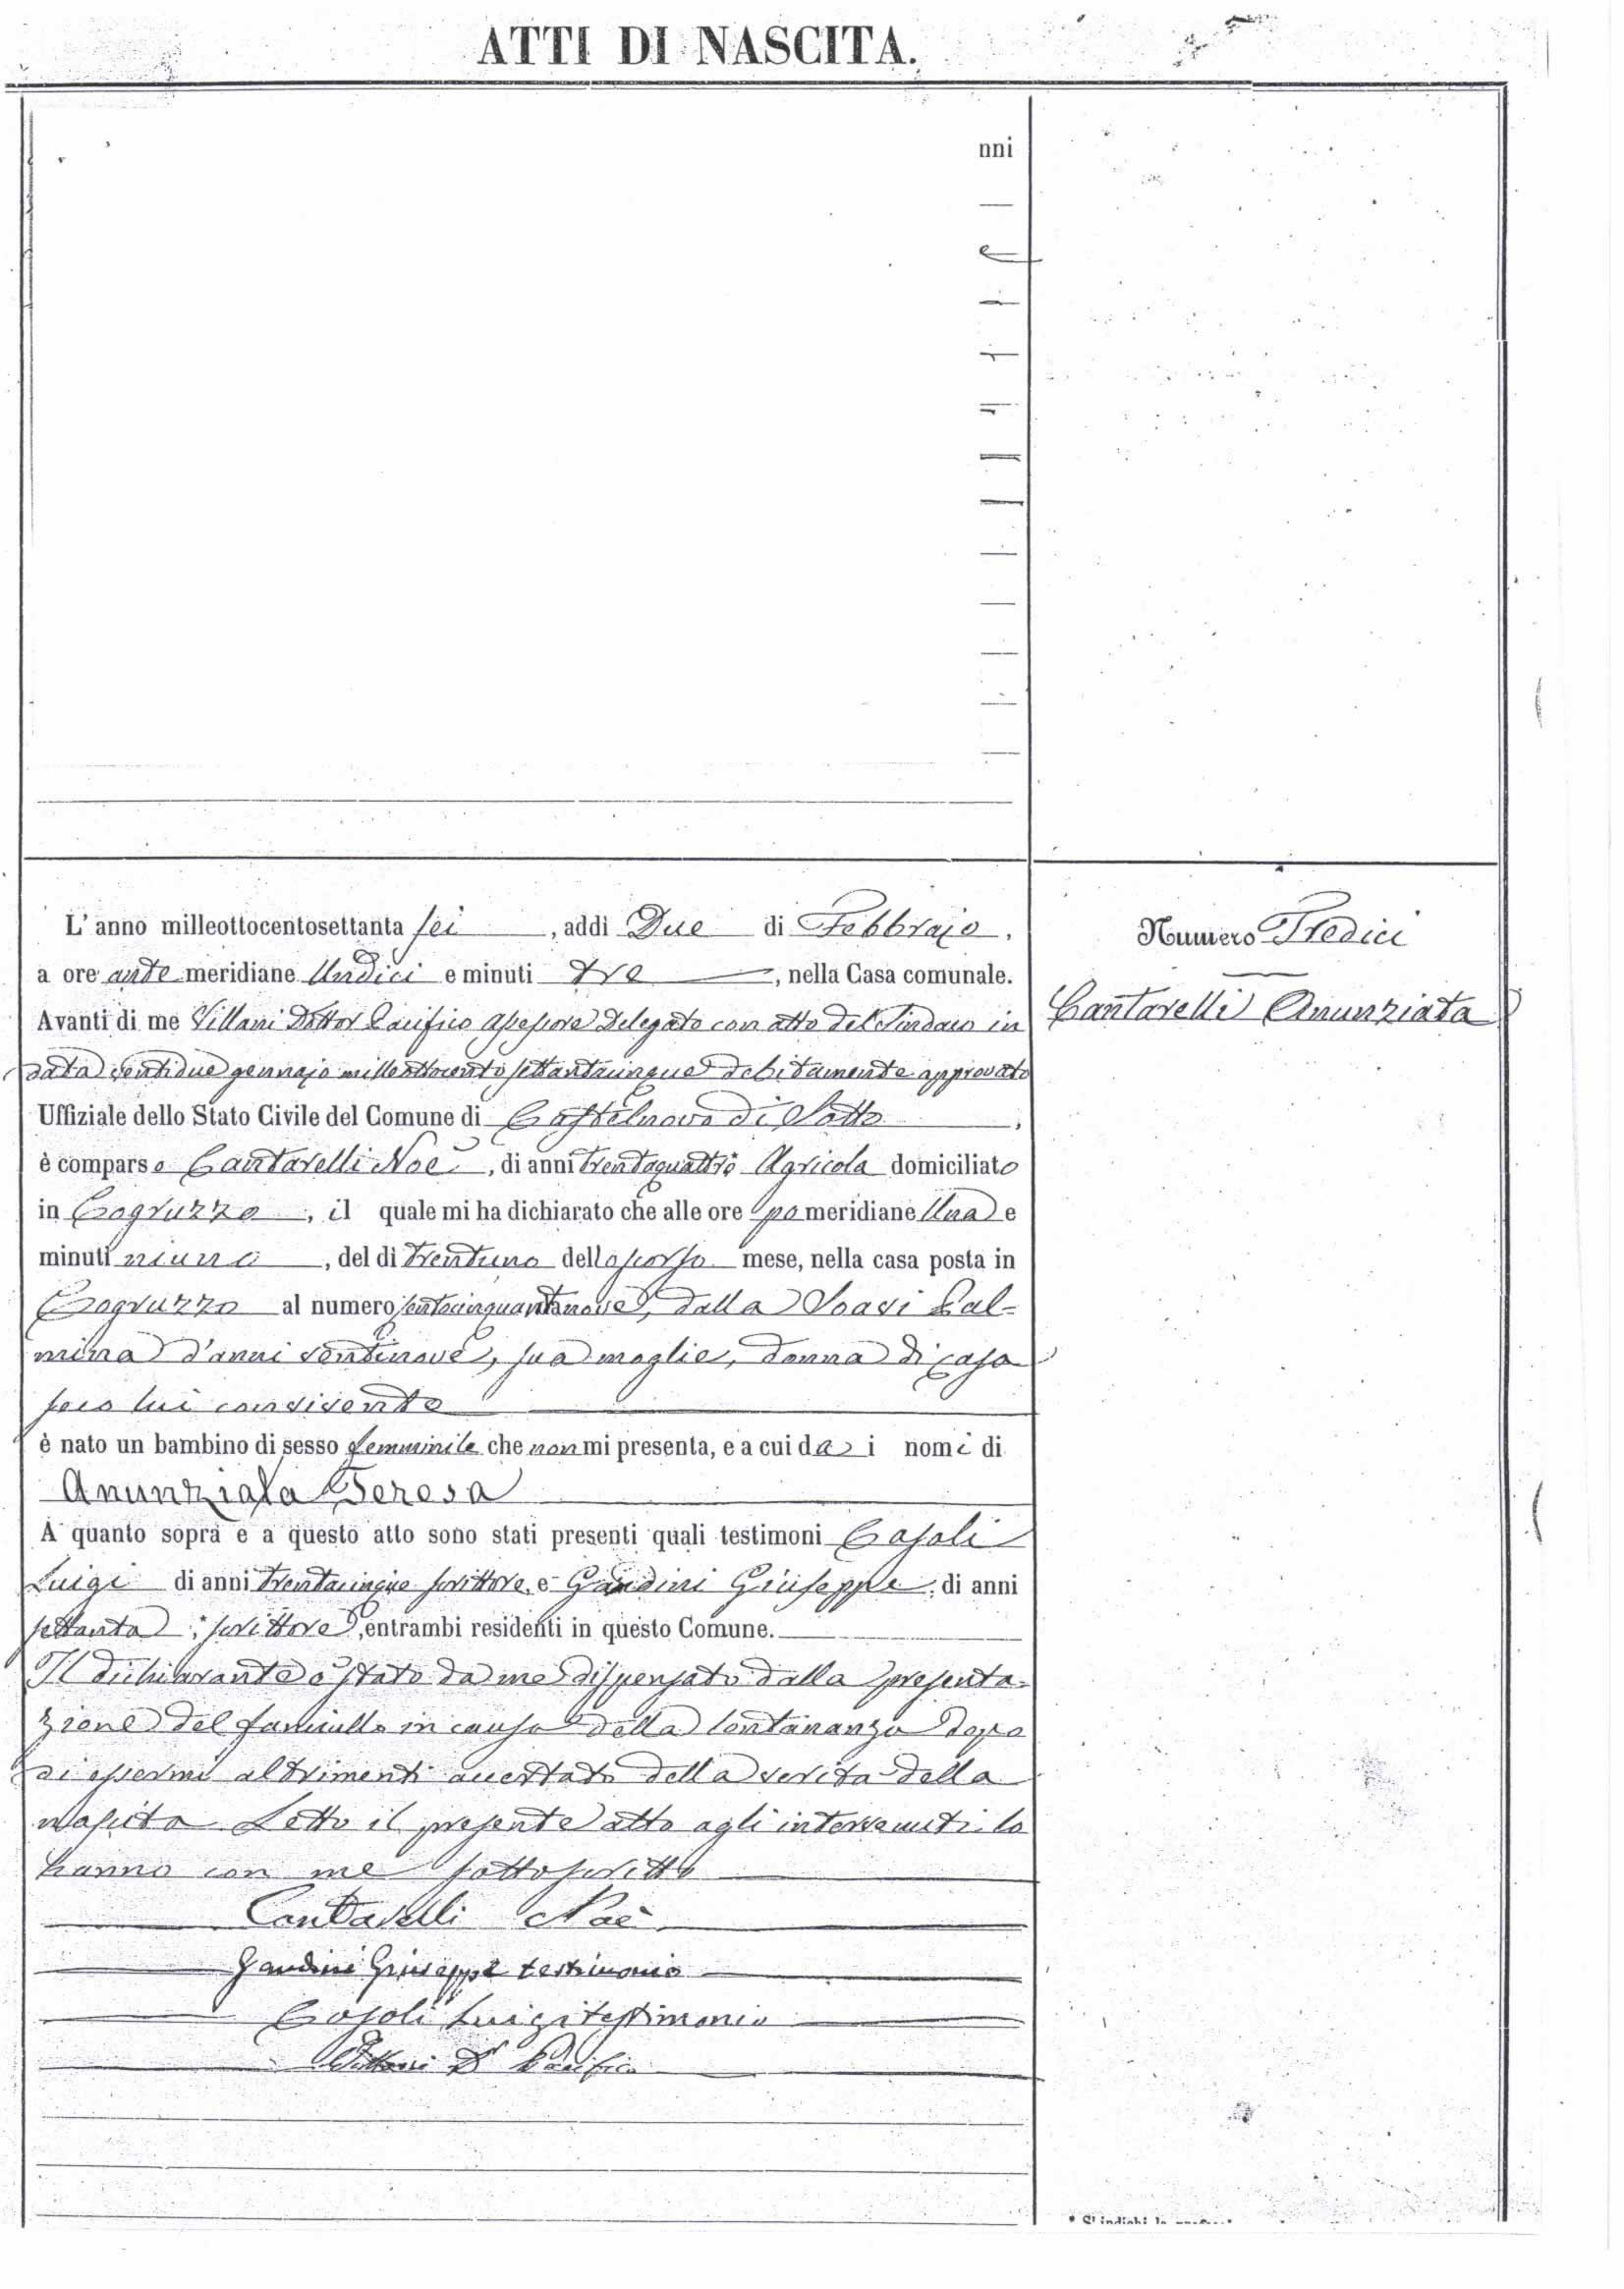 ATTI DI NASCITA.
nni
L' anno milleottocentosettanta sei, addi Due di Febbrajo,
a ore ante meridiane Undici e minuti tre, nella Casa comunale.
Avanti di me Villani Dottor Pacifico assessore Delegato con atto del Sindaco in
data ventidue gennajo milleottocento settantacinque debitamente approvato
Uffiziale dello Stato Civile del Comune di Castelnovo di Sotto,
è comparso Cantarelli Noè, di anni trentaquattro Agricola domiciliato
in Cogruzzo, il quale mi ha dichiarato che alle ore pomeridiane Una e
minuti niuno, del dì trentuno dello scorso mese, nella casa posta in
Cogruzzo al numero centocinquantanove, dalla Soavi Pal-
mira d'anni ventinove, sua moglie, donna di casa
seco lui convivente
è nato un bambino di sesso femminile che non mi presenta, e a cui dà i nomi di
Anunziata Teresa
A quanto sopra e a questo atto sono stati presenti quali testimoni Casoli
Luigi di anni trentacinque scrittore, e Gandini Giuseppe, di anni
settanta, scrittore, entrambi residenti in questo Comune.
Il dichiarante è stato da me dispensato dalla presenta-
zione del fanciullo in causa della lontananza dopo
di essermi altrimenti accertato della verità della
nascita Letto il presente atto agli intervenuti lo
hanno con me sottoscritto
Cantarelli Noè
Gandini Giuseppe testimonio
Casoli Luigi testimonio
Villani Dr Pacifico
Numero Tredici
Cantarelli Anunziata